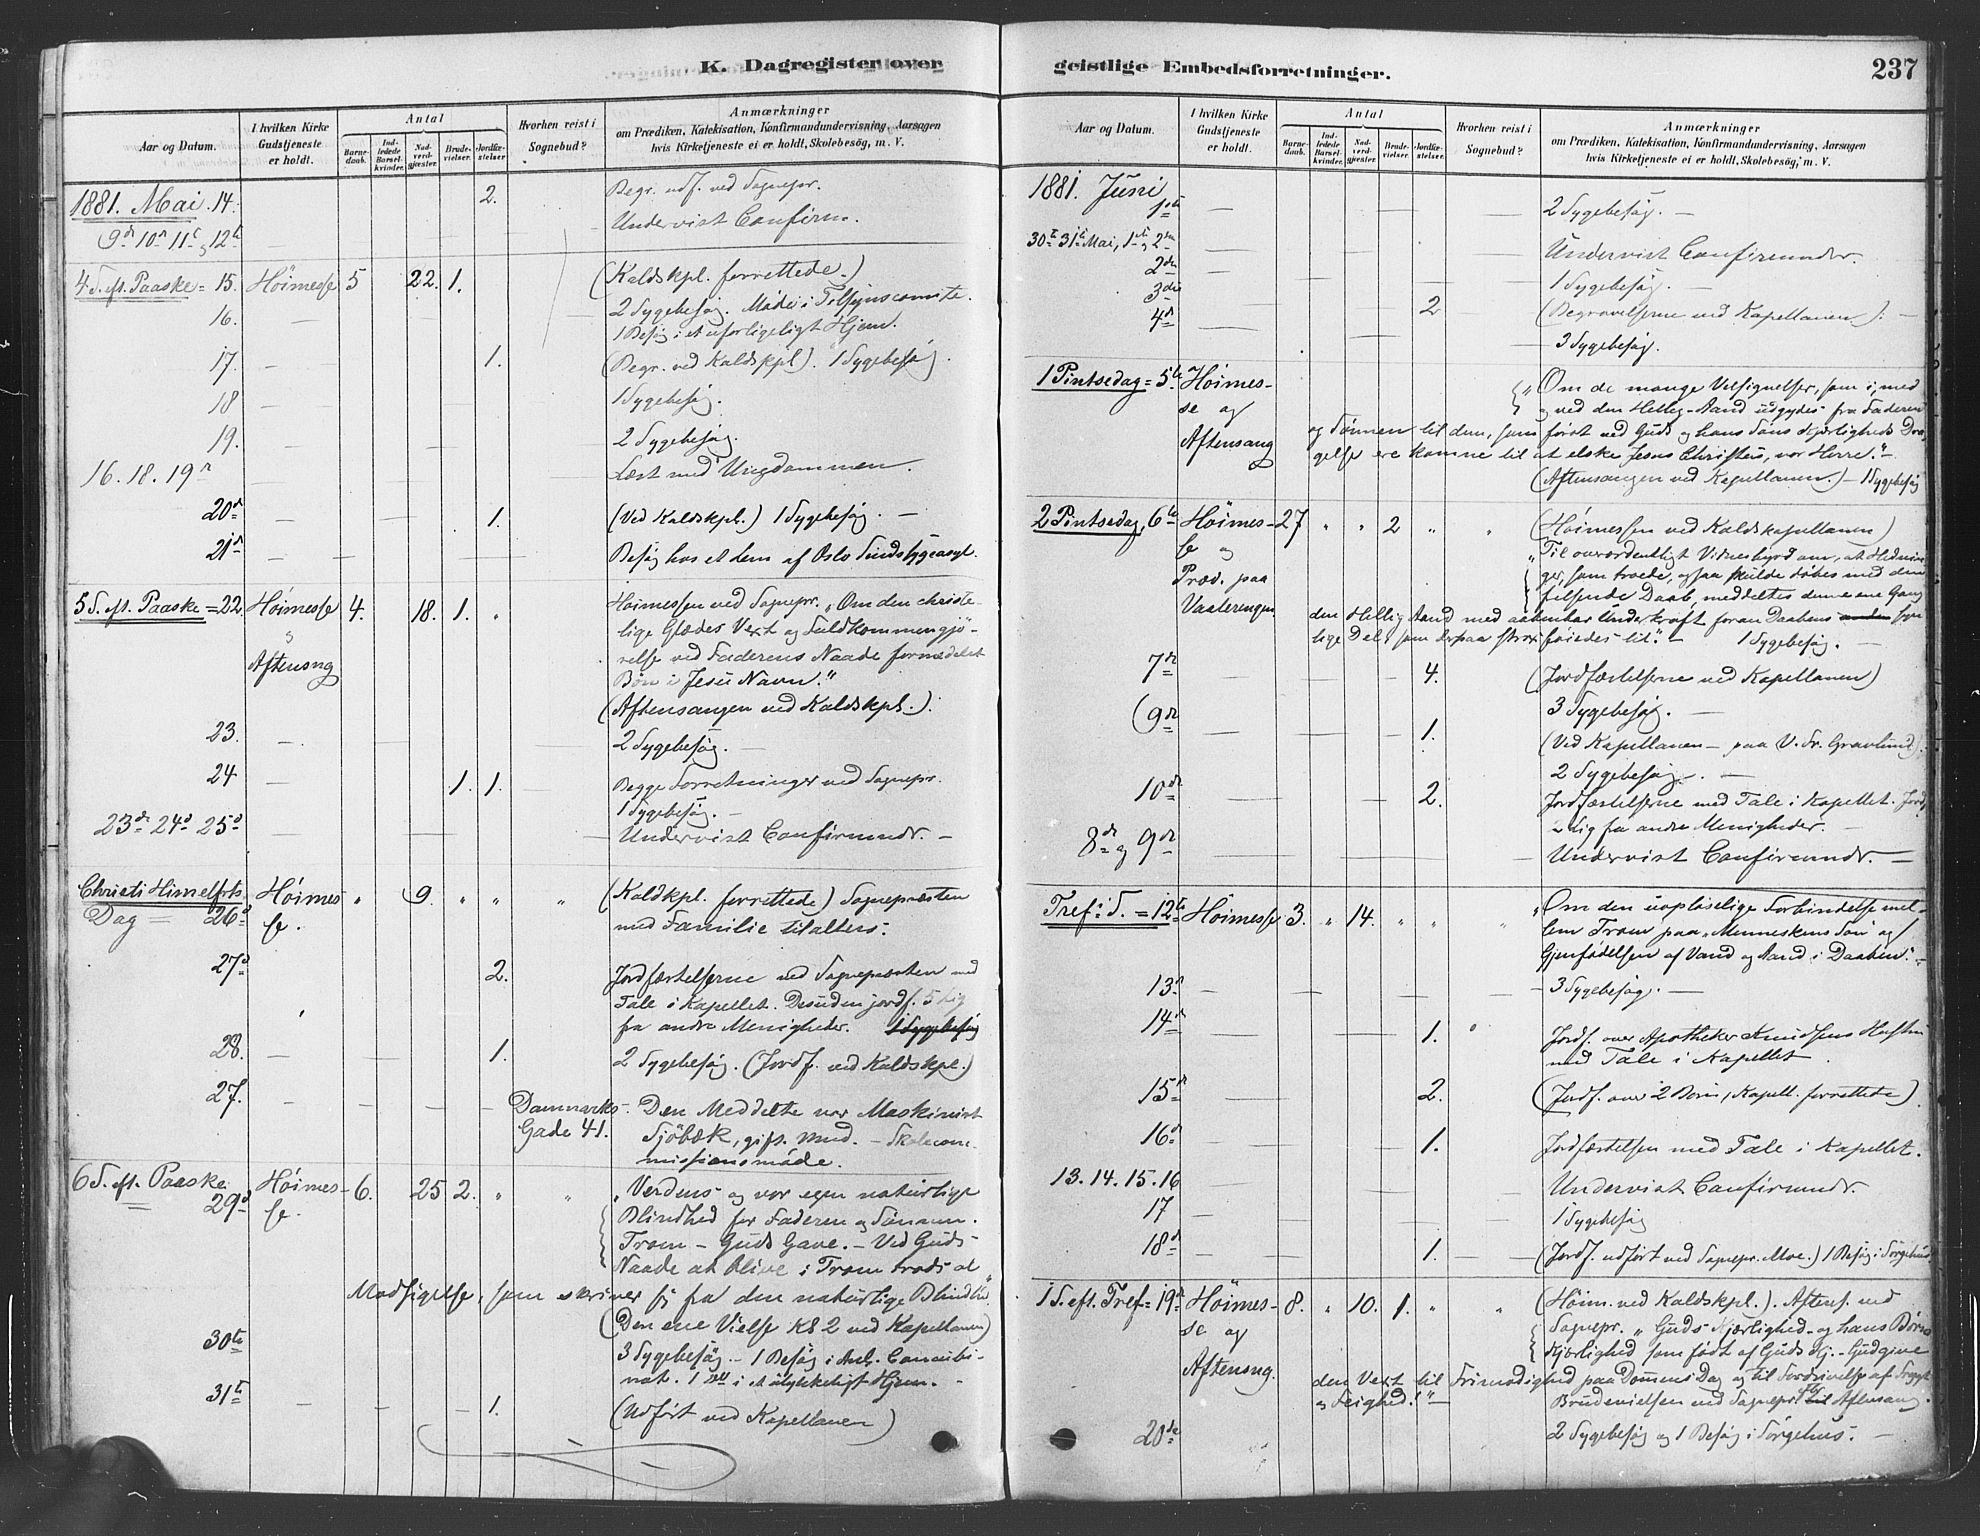 K. Dagregister over
Aar og Datum.
I hvilken Kirke Gudstjeneste er holdt.
Antal
Barnedaab.
Indledede Barselkvinder.
Nadverdgjester.
Brudevielser.
Jordfæstelser.
Hvorhen reist i Sognebud?
Anmærkninger
om Prædiken, Katekisation, Konfirmandundervisning, Aarsagen
hvis Kirketjeneste ei er holdt, Skolebesøg, m. V.
1881. Mai. 14. 2. Begr. udf. ved Sognepr.
9de 10n 11te 12te — Undervist Confirm.
4 S. eft. Paaske = 15. Höimesse 5 22. 1. (Kaldskpl. forrettede.)
16. — 2 Sygebesög. Möde i Tilsynscomite.
1 Besög i et uforligeligt Hjem.
17. — 1. (Begr. ved Kaldskpl). 1 Sygebesög.
18 — 1 Sygebesög.
19. — 2 Sygebesög.
16. 18. 19n Læst med Ungdommen.
20de — 1. (Ved Kaldskpl.) 1 Sygebesög. —
21de — Besög hos et lem af Oslo Sindssygeasyl.
5 S. eft. Paaske = 22. Höimesse 4. 18. 1. " Höimessen ved Sognepr. „Om den christe-
og lige Glædes Vext og Fuldkommengjö-
Aftensng relse ved Faderens Naade formedelst
Bön i Jesu Navn."
(Aftensangen ved Kaldskpl.).
23. — 2 Sygebesög. —
24. — 1. 1. Begge Forretninger ved Sognepr.
1 Sygebesög. —
23de 24d 25d — Undervist Confirmndr. —
Christi Himelfrts Höimes- " 9. " " " (Kaldkpl. forrettede) Sognepræsten
Dag = 26d se. med Familie tilalters.
27d 2. Jordfæstelserne ved Sognepræsten med
Tale i Kapellet. Desuden jordf. 5 Lig
fra andre Menigheder. 1 Sygebesög
28. — 1. 2 Sygebesög. (Jordf. ved Kaldskpl.)
27. — Danmarks- Den Meddelte var Maskinist
Gade 41. Sjöbæk, gift. Mnd. — Skolecom-
missionsmöde.
6 S. eft. Paaske Höimes- 6. 25 2. " " „Verdens og vor egen naturlige
= 29d se. Blindhed for Faderen og Sönnen.
Troen — Guds Gave. — Ved Guds
Naade at blive i Troen trods al
Modsigelse, som skriver sig fra den naturlige Blindhd".
(Den ene Vielse Kl 2 ved Kapellanen)
30te 3 Sygebesög — 1 Besög i Anl. Concubi-
nat. 1 do i et ulykkeligt Hjem. —
31te — 1. (Udført ved Kapellanen)
geistlige Embedsforretninger.
237
Aar og Datum.
I hvilken Kirke Gudstjeneste er holdt.
Antal
Barnedaab.
Indledede Barselkvinder.
Nadverdgjester.
Brudevielser.
Jordfæstelser.
Hvorhen reist i Sognebud?
Anmærkninger
om Prædiken, Katekisation, Konfirmandundervisning, Aarsagen
hvis Kirketjeneste ei er holdt, Skolebesøg, m. V.
1881. Juni
1ste — 2 Sygebesög. —
30te 31te Mai, 1ste og 2den Undervist Confirmnder.
2den — 1 Sygebesög. —
3die — 2 (Begravelserne ved Kapellanen). —
4de — 3 Sygebesög.
1 Pintsedag = 5te Höimes- „Om de mange Velsignelser, som i, med
se og og ved den Hellig-Aand udgydes fra Faderen
Aftensang og Sönnen til dem, som först ved Guds og hans Söns Kjærligheds Dra-
gelse ere komne til at elske Jesus Christus, vor Herre." —
(Aftensangen ved Kapellanen.) — 1 Sygebesög
2 Pintsedag, 6te Höimes- 27 " " 2 " " (Höimessen ved Kaldskapellanen)
se og „Til overordentligt Vidnesbyrd om, at Hednin-
Præd. paa ger, som troede, ogsaa skulde döbes med den
Vaalerengen filgende Daab, meddeltes dem ene Gang
den Hellig Aand med aabenbar Underkraft foran Daabens syn-
lige Del, som derpaa strax föiedes til". — 1 Sygebesög. —
7de 4. (Jordfæstelserne ved Kapellanen)
3 Sygebesög. —
(9de — 1. (Ved Kapellanen — paa V. Fr. Gravlund).
2 Sygebesög. —
10de — 2. Jordfæstelserne med Tale i Kapellet. Jordf.
2 Lig fra andre Menigheder. —
8de og 9de — Undervist Confirmndr. —
Tref: S. = 12te Höimesse 3. " 14. " " " „Om den uoplöselige Forbindelse mel-
lem Troen paa „Menneskens Sön" og
Gjenfödelsen af Vand og Aand i Daaben." —
13de — 3 Sygebesög. —
14de — 1. Jordf. over Apotheker Amudsens Hustru
med Tale i Kapellet.
15de — 2. (Jordf. over 2 Börn, Kapell. forrettede)
16de — 1. Jordfæstelsen med Tale i Kapellet.
13. 14. 15. 16 Undervist Confirmndr.
17 — 1 Sygebesög
18de — 1. (Jordf. udfört ved Sognepr. Moe.) 1 Besög i Sörgehus.
1 S. eft. Tref = 19de Höimes- 8. " 10. 1. " " (Höim. ved Kaldskpl.). Aftens. ved
se og Sognepr. „Guds Kjærlighed og hans Börns
Aftensng. Kjærlighed som födt af Guds Kj. — Gud give
den Vext til Frimodighed paa Dommens Dag og til Fordrivelse af Frygt
og Feighed!" — Brudevielsen ved Sognepr. til Aftensang.
20de 2 Sygebesög og 1 Besög i Sörgehus. —